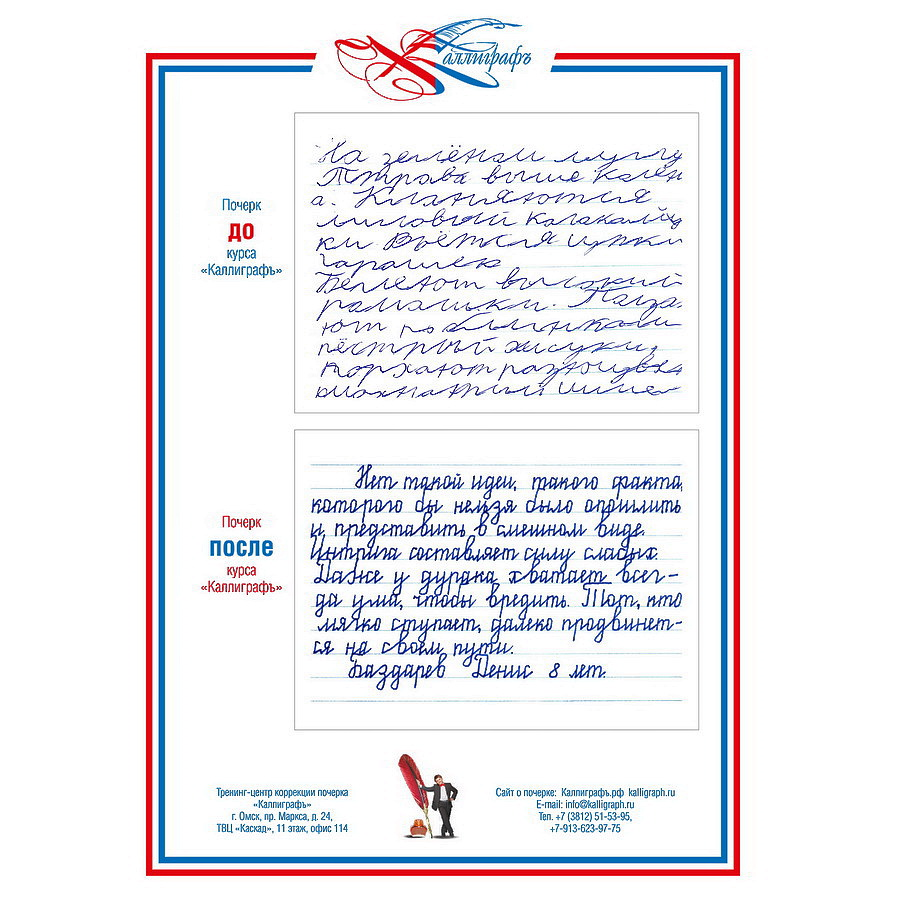 Каллиграфъ
Почерк
ДО
курса
«Каллиграфъ»
На зелёнам лугу
Птрава выше кален
а. Кланяются
лиловый калакальч
ки Вьётся цупки
гарашек
Белеют высокий
рамашки. Палза
ют по былинкам
пёстрый жуки,
Порхают разноцвы
мохнатый шме
Почерк
после
курса
«Каллиграфъ»
Нет такой идеи, такого факта,
которого бы нельзя было опошлить
и представить в смешном виде.
Интрига составляет силу слабых.
Даже у дурака хватает всег-
да ума, чтобы вредить. Тот, кто
мягко ступает, далеко продвинет-
ся на своем пути.
Баздарев Денис 8 лет.
Тренинг-центр коррекции почерка
«Каллиграфъ»
г. Омск, пр. Маркса, д. 24,
ТВЦ «Каскад», 11 этаж, офис 114
Сайт о почерке: Каллиграфъ.рф kalligraph.ru
E-mail: info@kalligraph.ru
Тел. +7 (3812) 51-53-95,
+7-913-623-97-75